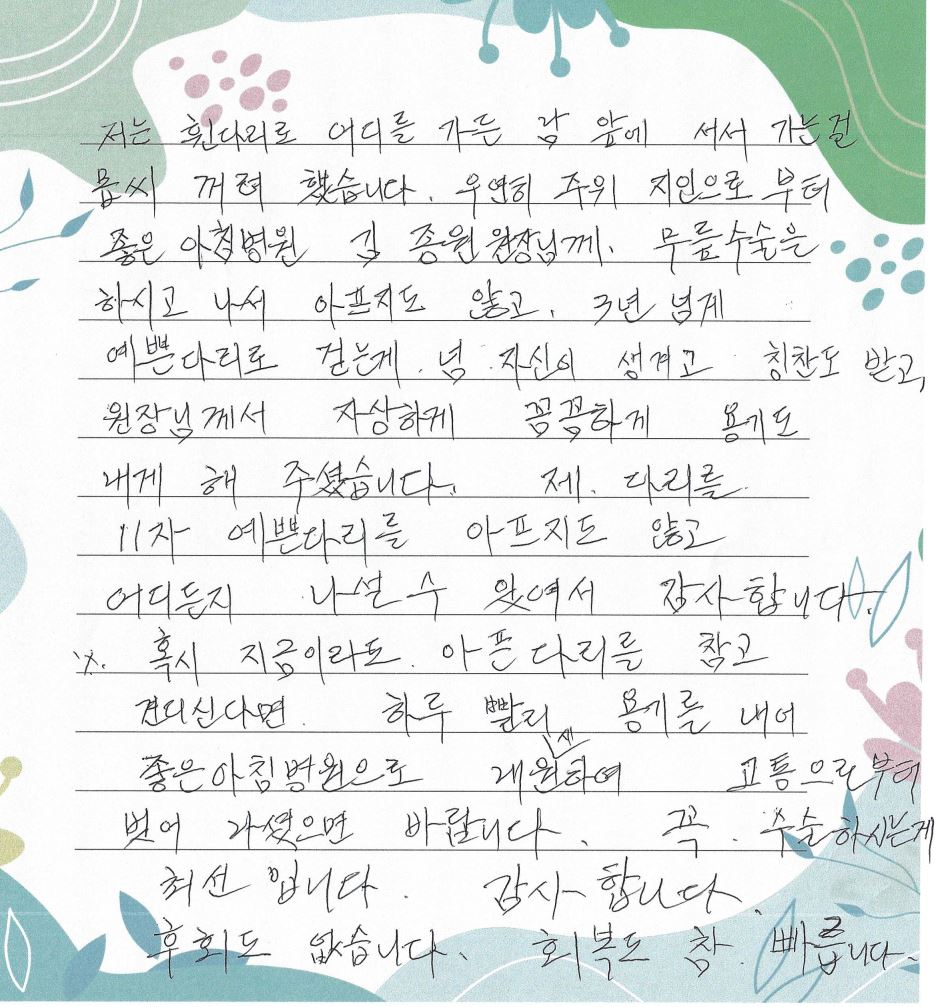 저는 휜다리로 어디를 가든 남 앞에 서서 가는걸
몹씨 꺼려 했습니다. 우연히 주위 지인으로 부터
좋은 아침병원 김 종원 원장님께. 무릎수술을
하시고 나서 아프지도 않고. 3년 넘게
예쁜다리로 걷는게. 넘 자신이 생겨고 칭찬도 받고,
원장님께서 자상하게 꼼꼼하게 용기도
내게 해 주셨습니다. 제. 다리를
11자 예쁜다리를 아프지도 않고
어디든지 나설 수 있여서 감사합니다.
※. 혹시 지금이라도. 아픈다리를 참고
견디신다면. 하루 빨리 용기를 내어
좋은아침병원으로 내원하여 고통으로부터
벗어 나셨으면 바랍니다. 꼭. 수술하시는게
최선 입니다. 감사합니다.
후회도 없습니다. 회복도 참. 빠릅니다.